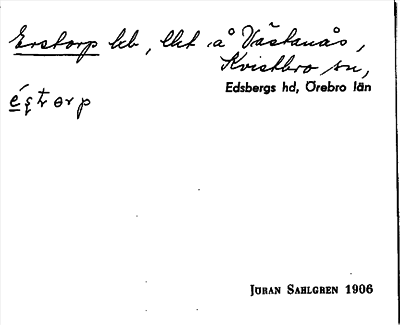 Erstorp lkb, lkt å Västanås,
Kvistbro sn,
Edsbergs hd, Örebro län
Jöran Sahlgren 1906